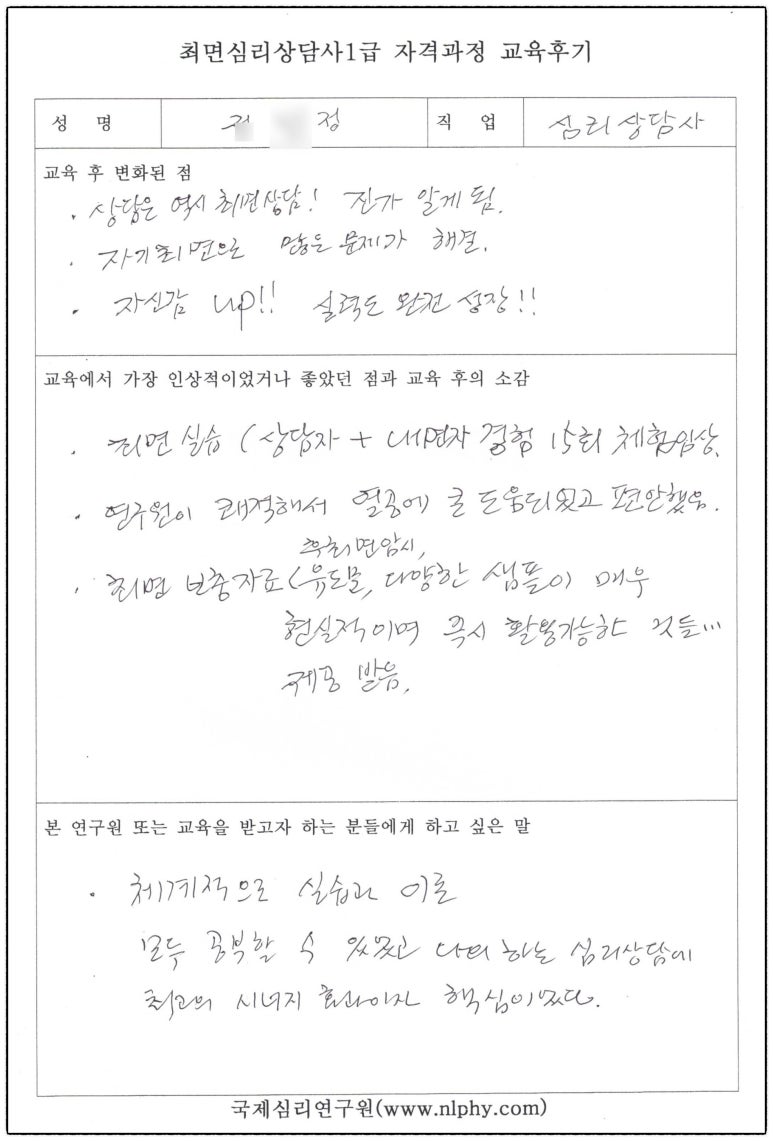 최면심리상담사1급 자격과정 교육후기
성 명 정 직 업 심리상담사
교육 후 변화된 점
. 상담은 역시 최면상담! 진가 알게 됨.
. 자기최면으로 많은 문제가 해결.
. 자신감 up!! 실력도 완전 성장!!
교육에서 가장 인상적이었거나 좋았던 점과 교육 후의 소감
. 최면 실습 (상담자 + 내면자 경험 15회 체험임상.
. 연구원이 쾌적해서 열공에 큰 도움되었고 편안했음.
후최면암시,
. 최면 보충자료(유도문, 다양한 샘플이 매우
현실적이며 즉시 활용가능한 것들...
제공 받음.
본 연구원 또는 교육을 받고자 하는 분들에게 하고 싶은 말
. 체계적으로 실습과 이론
모두 공부할 수 있었고 나의 하는 심리상담에
최고의 시너지 효과이자 핵심이었다.
국제심리연구원(www.nlphy.com)